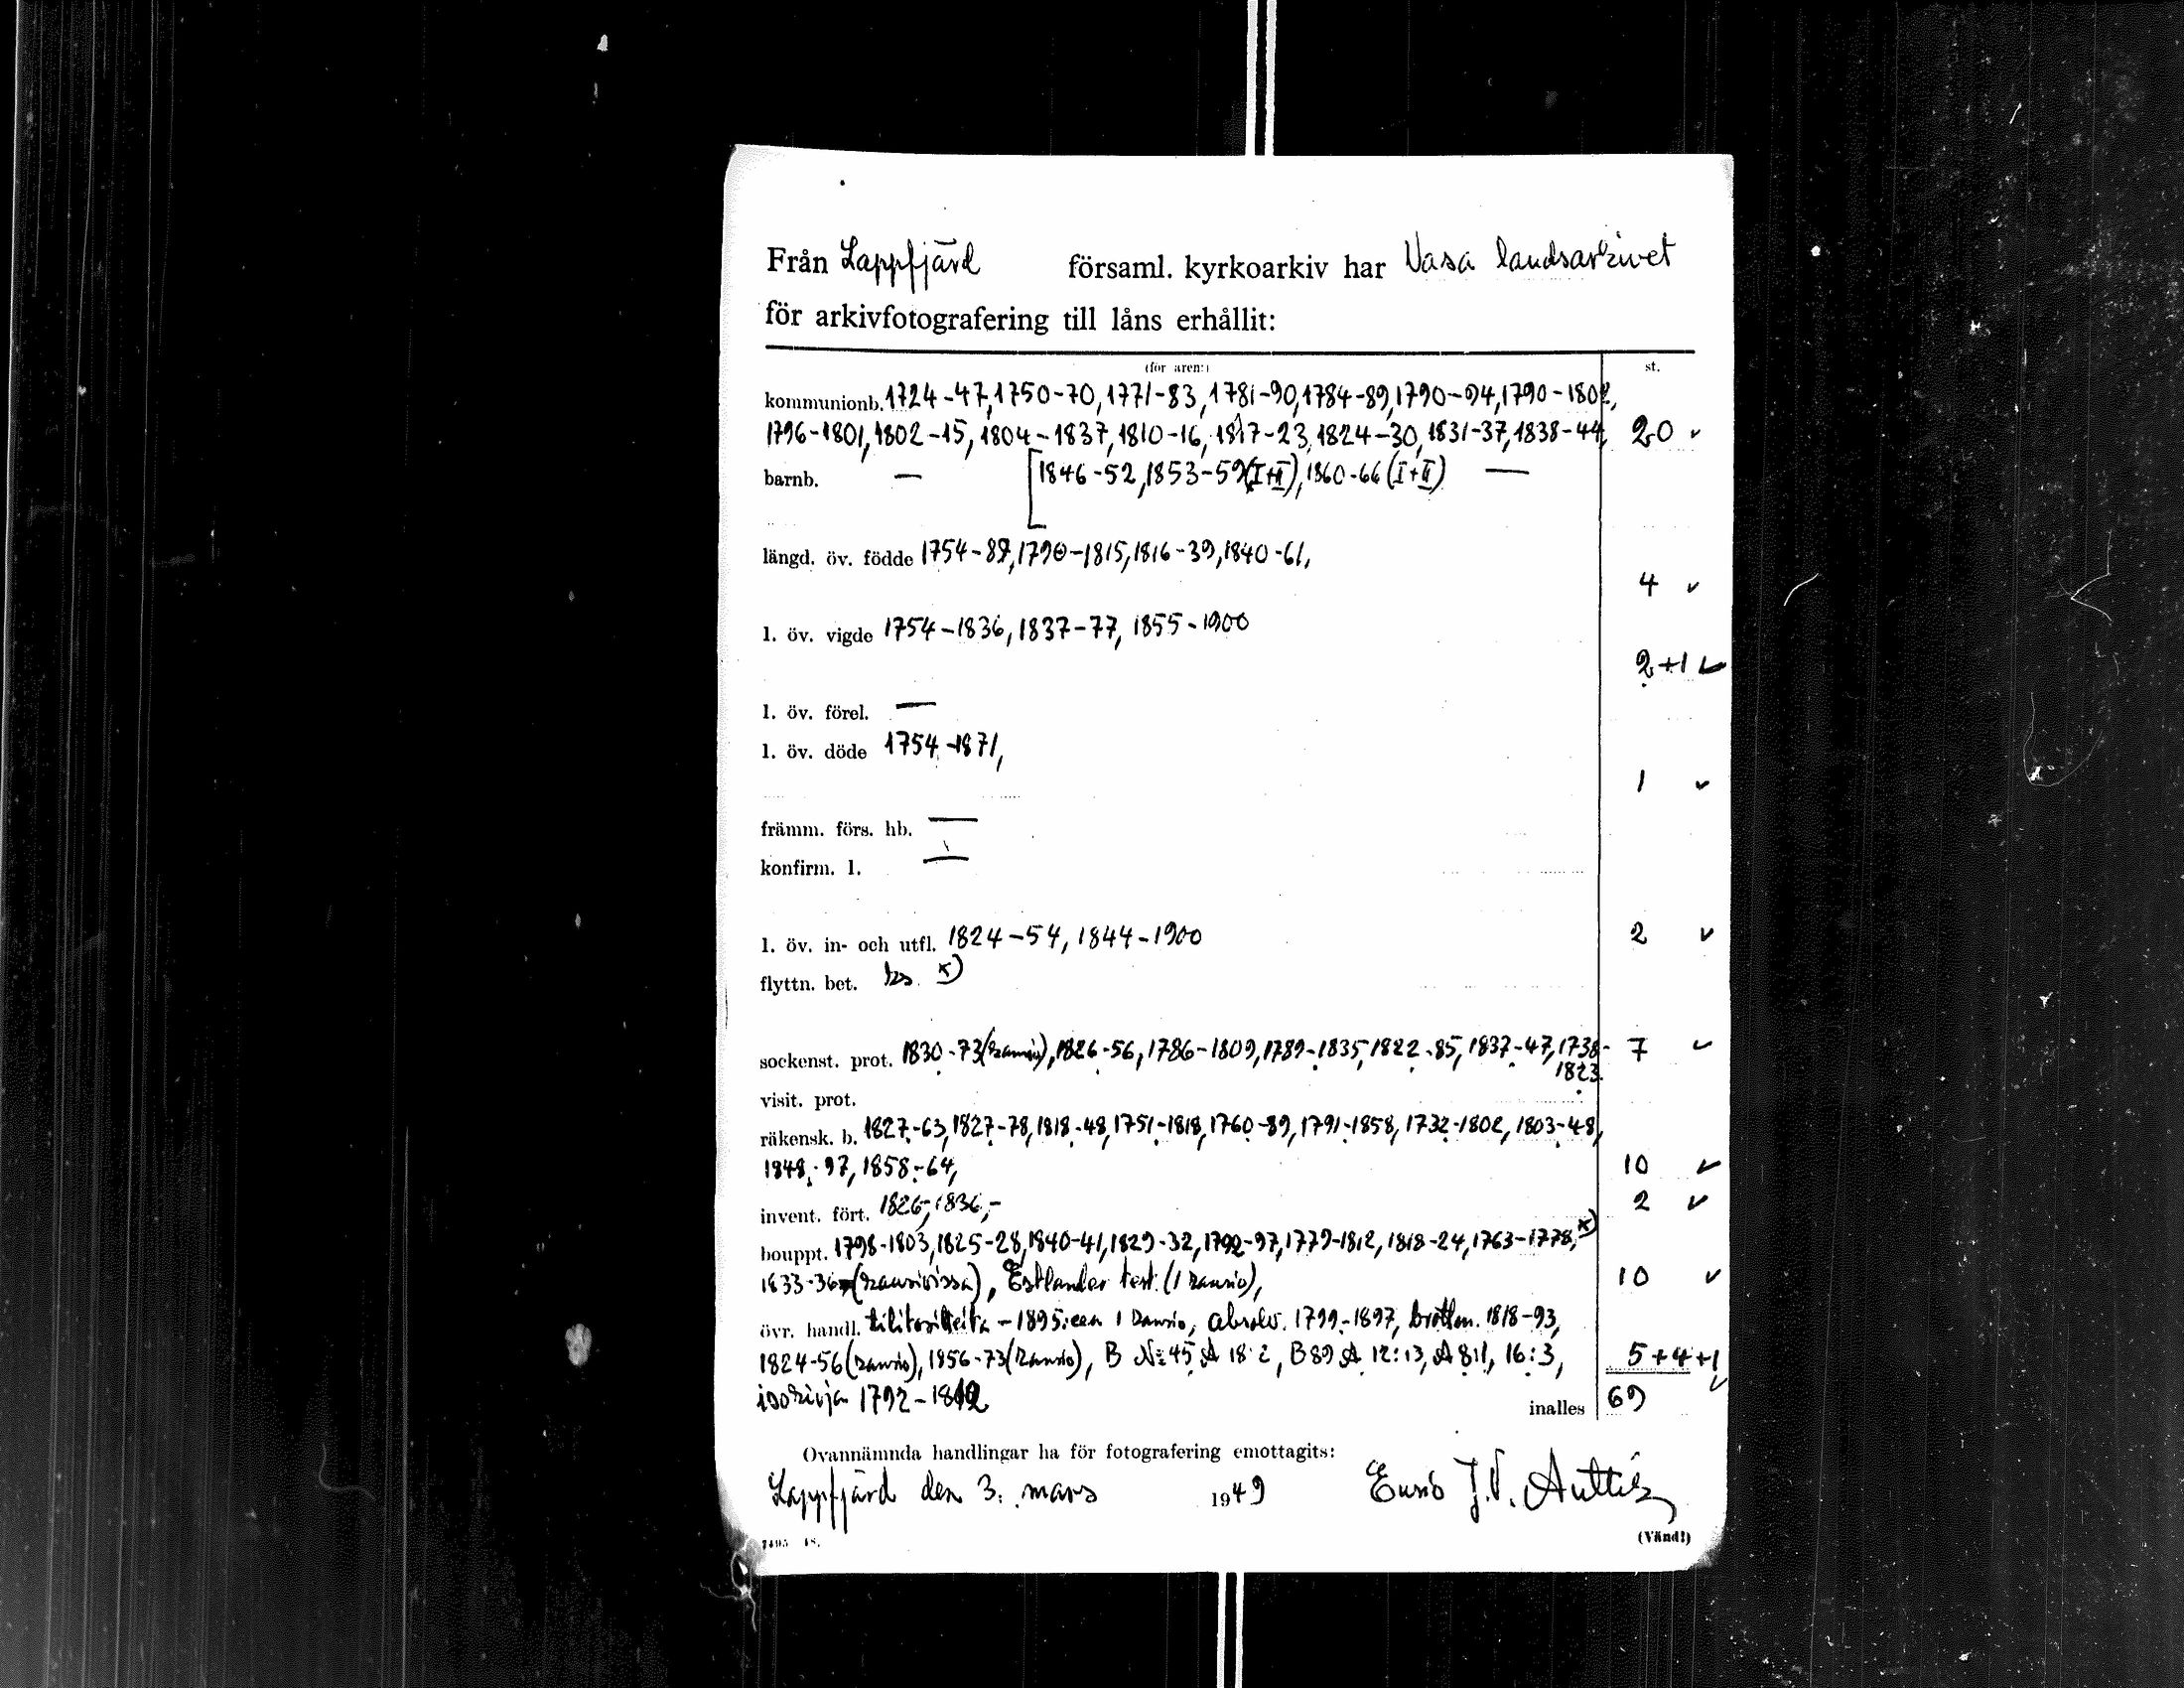 Från Lappfjärd församl. kyrkoarkiv har Vasa landsarkivet
för arkivfotografering till låns erhållit:
(för åren:) st.
kommunionb. 1724-47, 1750-70, 1771-83, 1781-90, 1784-89, 1790-94, 1790-1802,
1796-1801, 1802-15, 1804-1837, 1810-16, 1817-23, 1824-30, 1831-37, 1838-44, 20 ✓
barnb. — [1846-52, 1853-59 (I+II), 1860-66 (I+II) —
längd. öv. födde 1754-89, 1790-1815, 1816-39, 1840-61,
4 ✓
l. öv. vigde 1754-1836, 1837-77, 1855-1900
2+1 ✓
l. öv. förel. —
l. öv. döde 1754-1871,
1 ✓
främm. förs. hb. —
konfirm. l. —
l. öv. in- och utfl. 1824-54, 1844-1900 2 ✓
flyttn. bet. x)
sockenst. prot. 1830-73 (kansio), 1826-56, 1786-1809, 1789-1835, 1822-85, 1837-47, 1738- 7 ✓
1823.
visit. prot.
räkensk. b. 1827-63, 1827-78, 1818-48, 1751-1818, 1760-89, 1791-1858, 1732-1802, 1803-48,
1848-97, 1858-64, 10 ✓
invent. fört. 1826-, 1836,- 2 ✓
bouppt. 1798-1803, 1825-28, 1840-41, 1829-32, 1792-97, 1779-1812, 1818-24, 1763-1778, x)
1833-36 (kansivissa), Estlander test. (1 kansio), 10 ✓
övr. handl. tilitositteita -1895:een 1 kansio, absolv. 1799-1897, brottm. 1818-93,
1824-56 (kansio), 1856-73 (kansio), B No 45 A 18:2, B 89 A 12:13, A 8:1, 16:3, 5+4+1 ✓
isokirja 1792-1812 inalles 69
Ovannämnda handlingar ha för fotografering emottagits:
Lappfjärd den 3. mars 1949 J.V. Anttila
(Vänd!)